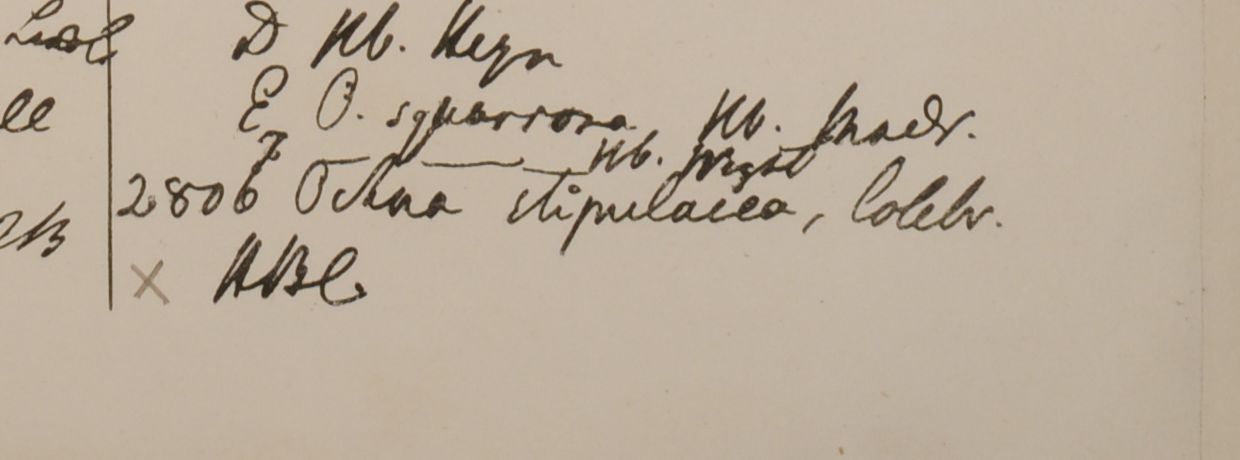 D Hb. Heyn
E O. squarrosa, Hb. Madr.
F ——— Hb. Wight
2806 Ochna stipulacea, Colebr.
× HBC.